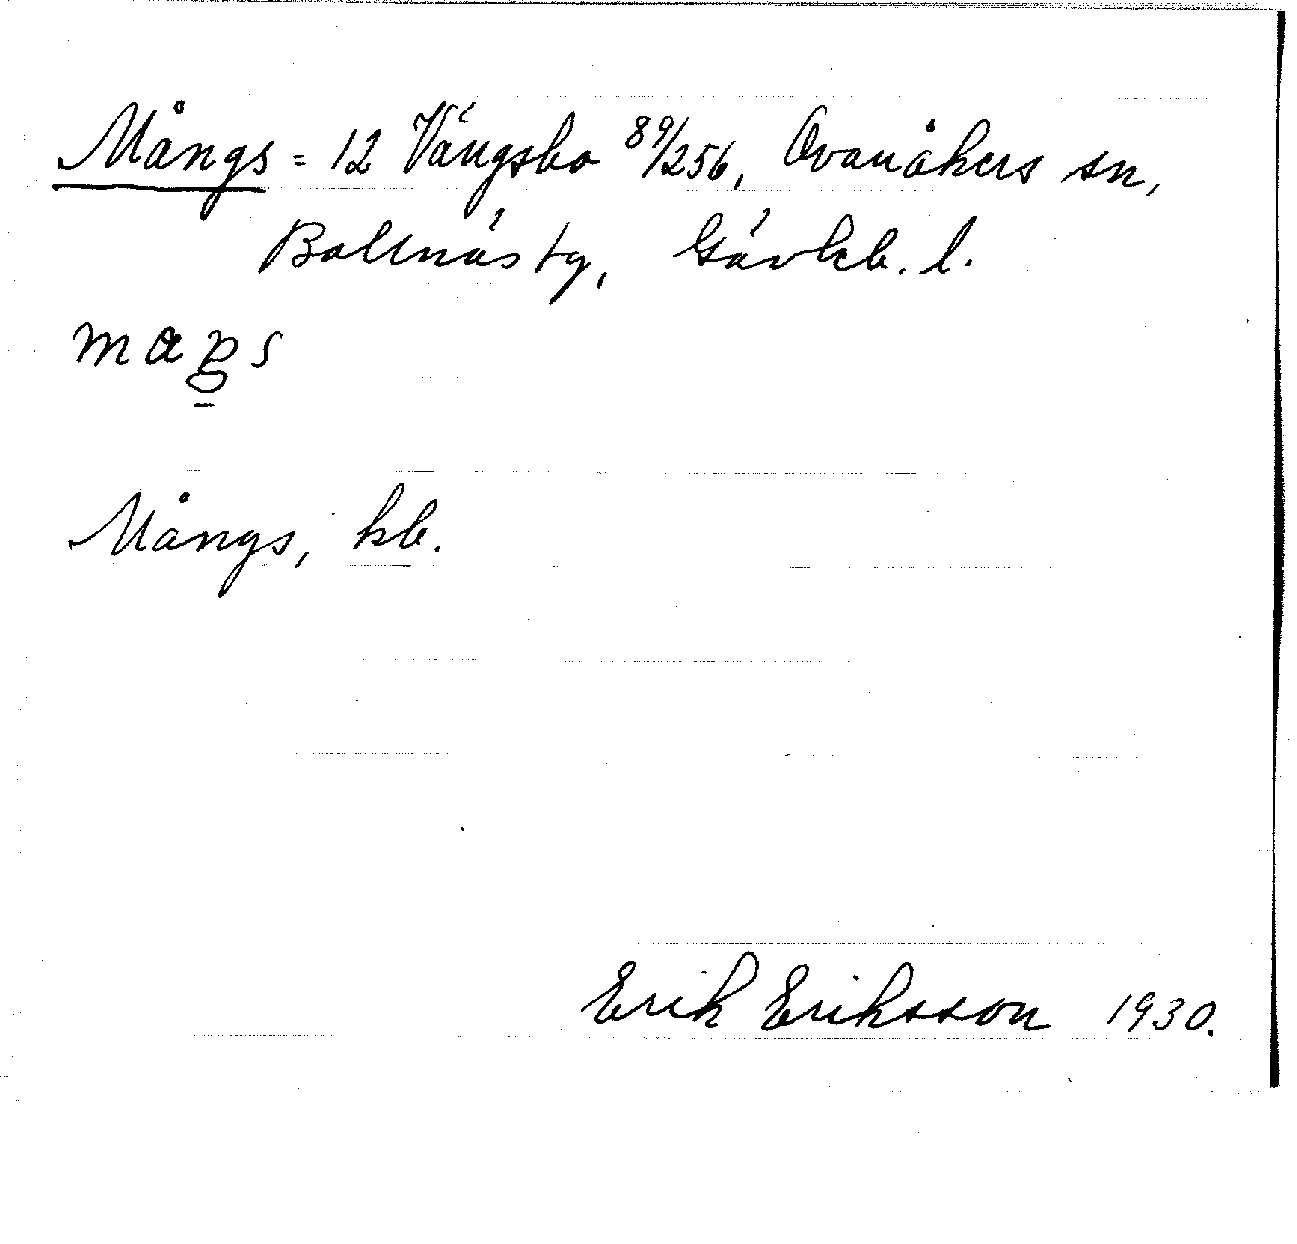 Mångs = 12 Vängsbo 89/256, Ovanåkers sn,
Bollnäs tg, Gävleb. l.
Mångs, kb.
Erik Eriksson 1930.